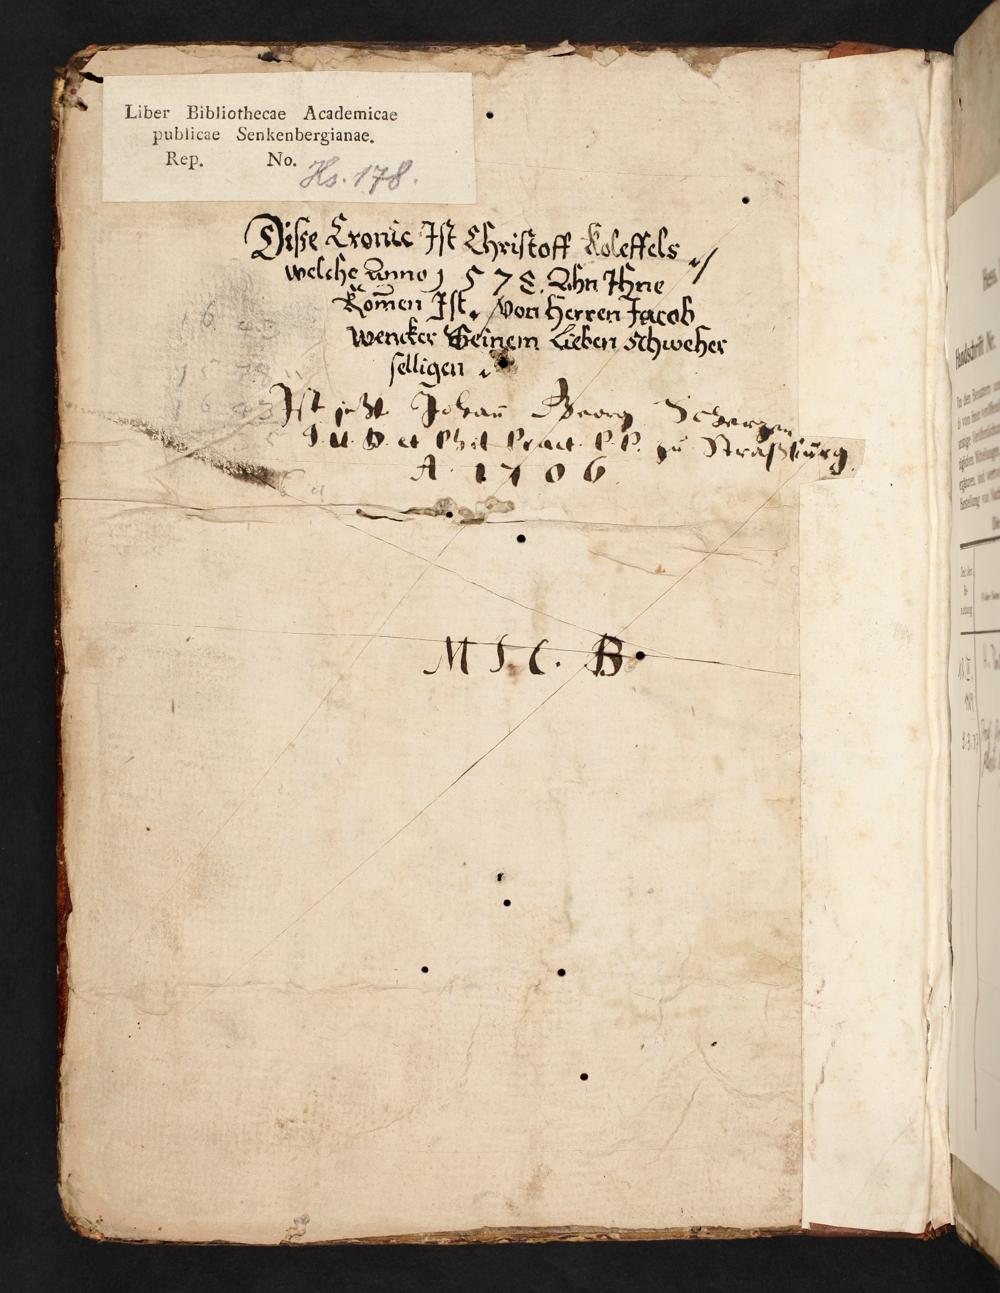 Liber Bibliothecae Academicae
publicae Senkenbergianae.
Rep. No. Hs. 178.
Disse Cronic Ist Christoff Koleffels
welche Anno 1578. Ahn Ihne
Komen Ist. von Herren Jacob
wencker Seinem Lieben schweher
selligen
Ist jetzt Johan Georg Scherzen
J. U. D. et Phil. Pract. P. P. zu Straßburg
A. 1706
MSC. B
Handschrift Nr.